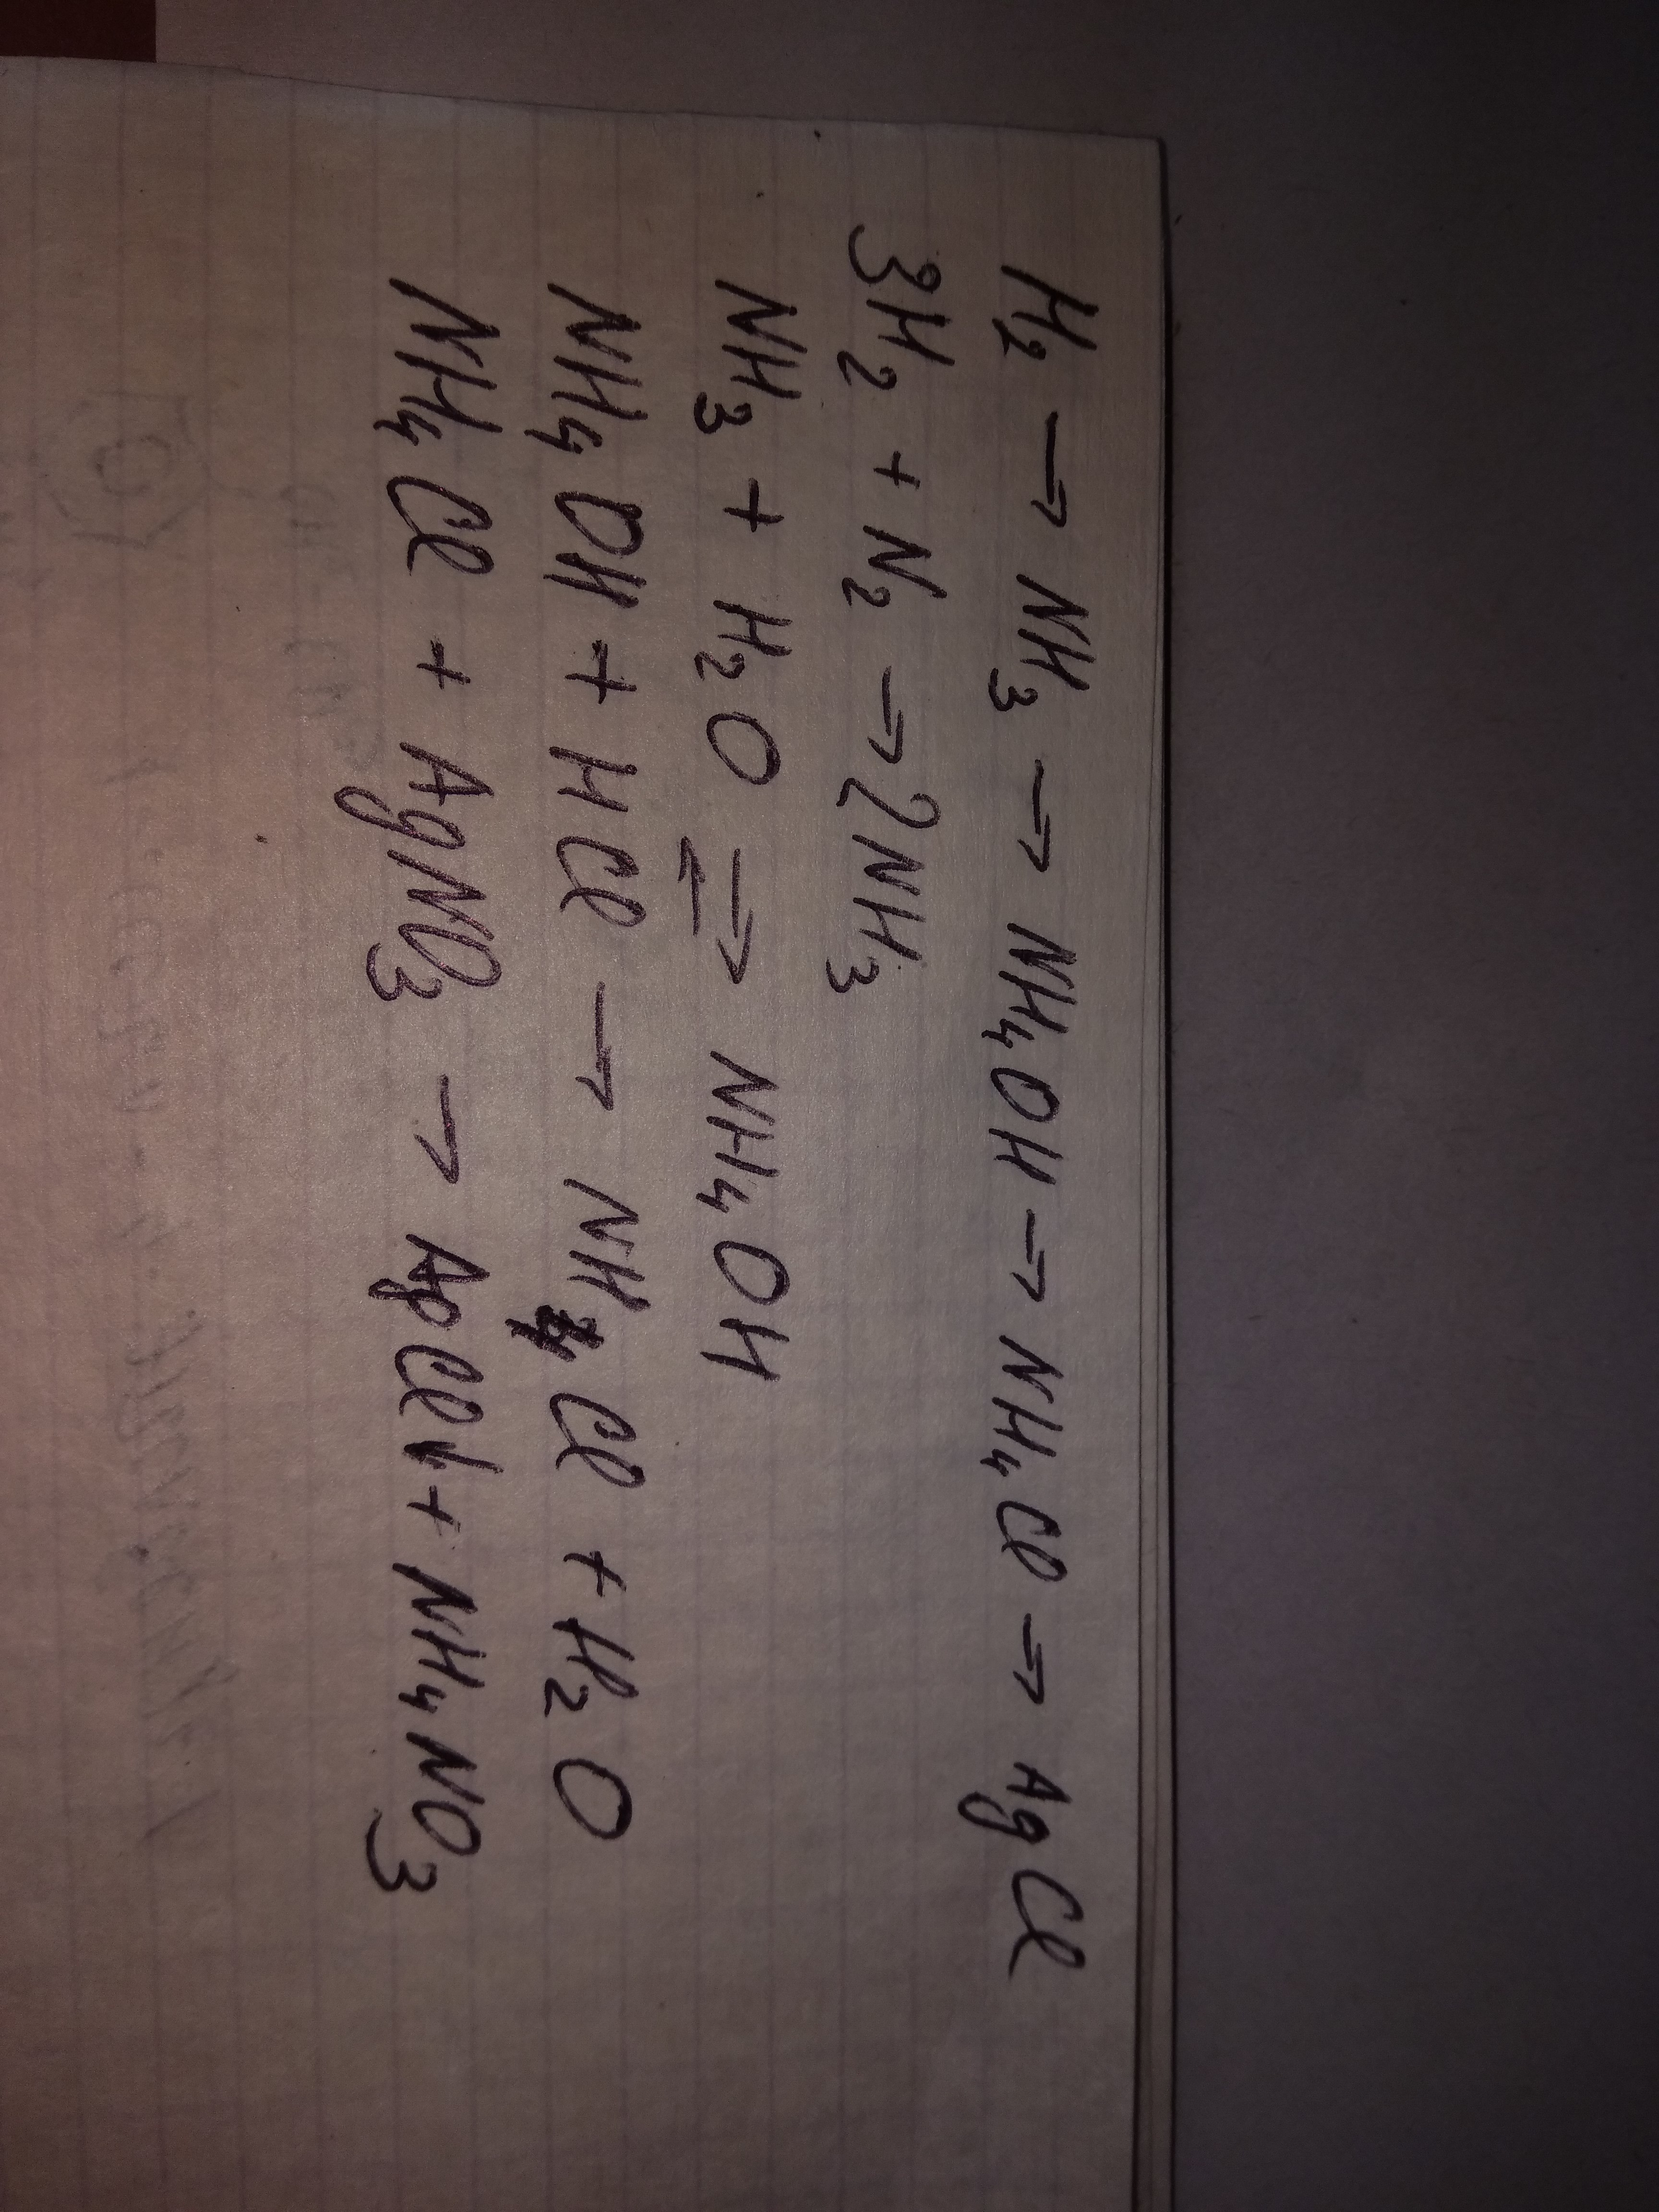 H₂ → NH₃ → NH₄OH → NH₄Cl → AgCl
3H₂ + N₂ → 2NH₃
NH₃ + H₂O ⇄ NH₄OH
NH₄OH + HCl → NH₄Cl + H₂O
NH₄Cl + AgNO₃ → AgCl↓ + NH₄NO₃